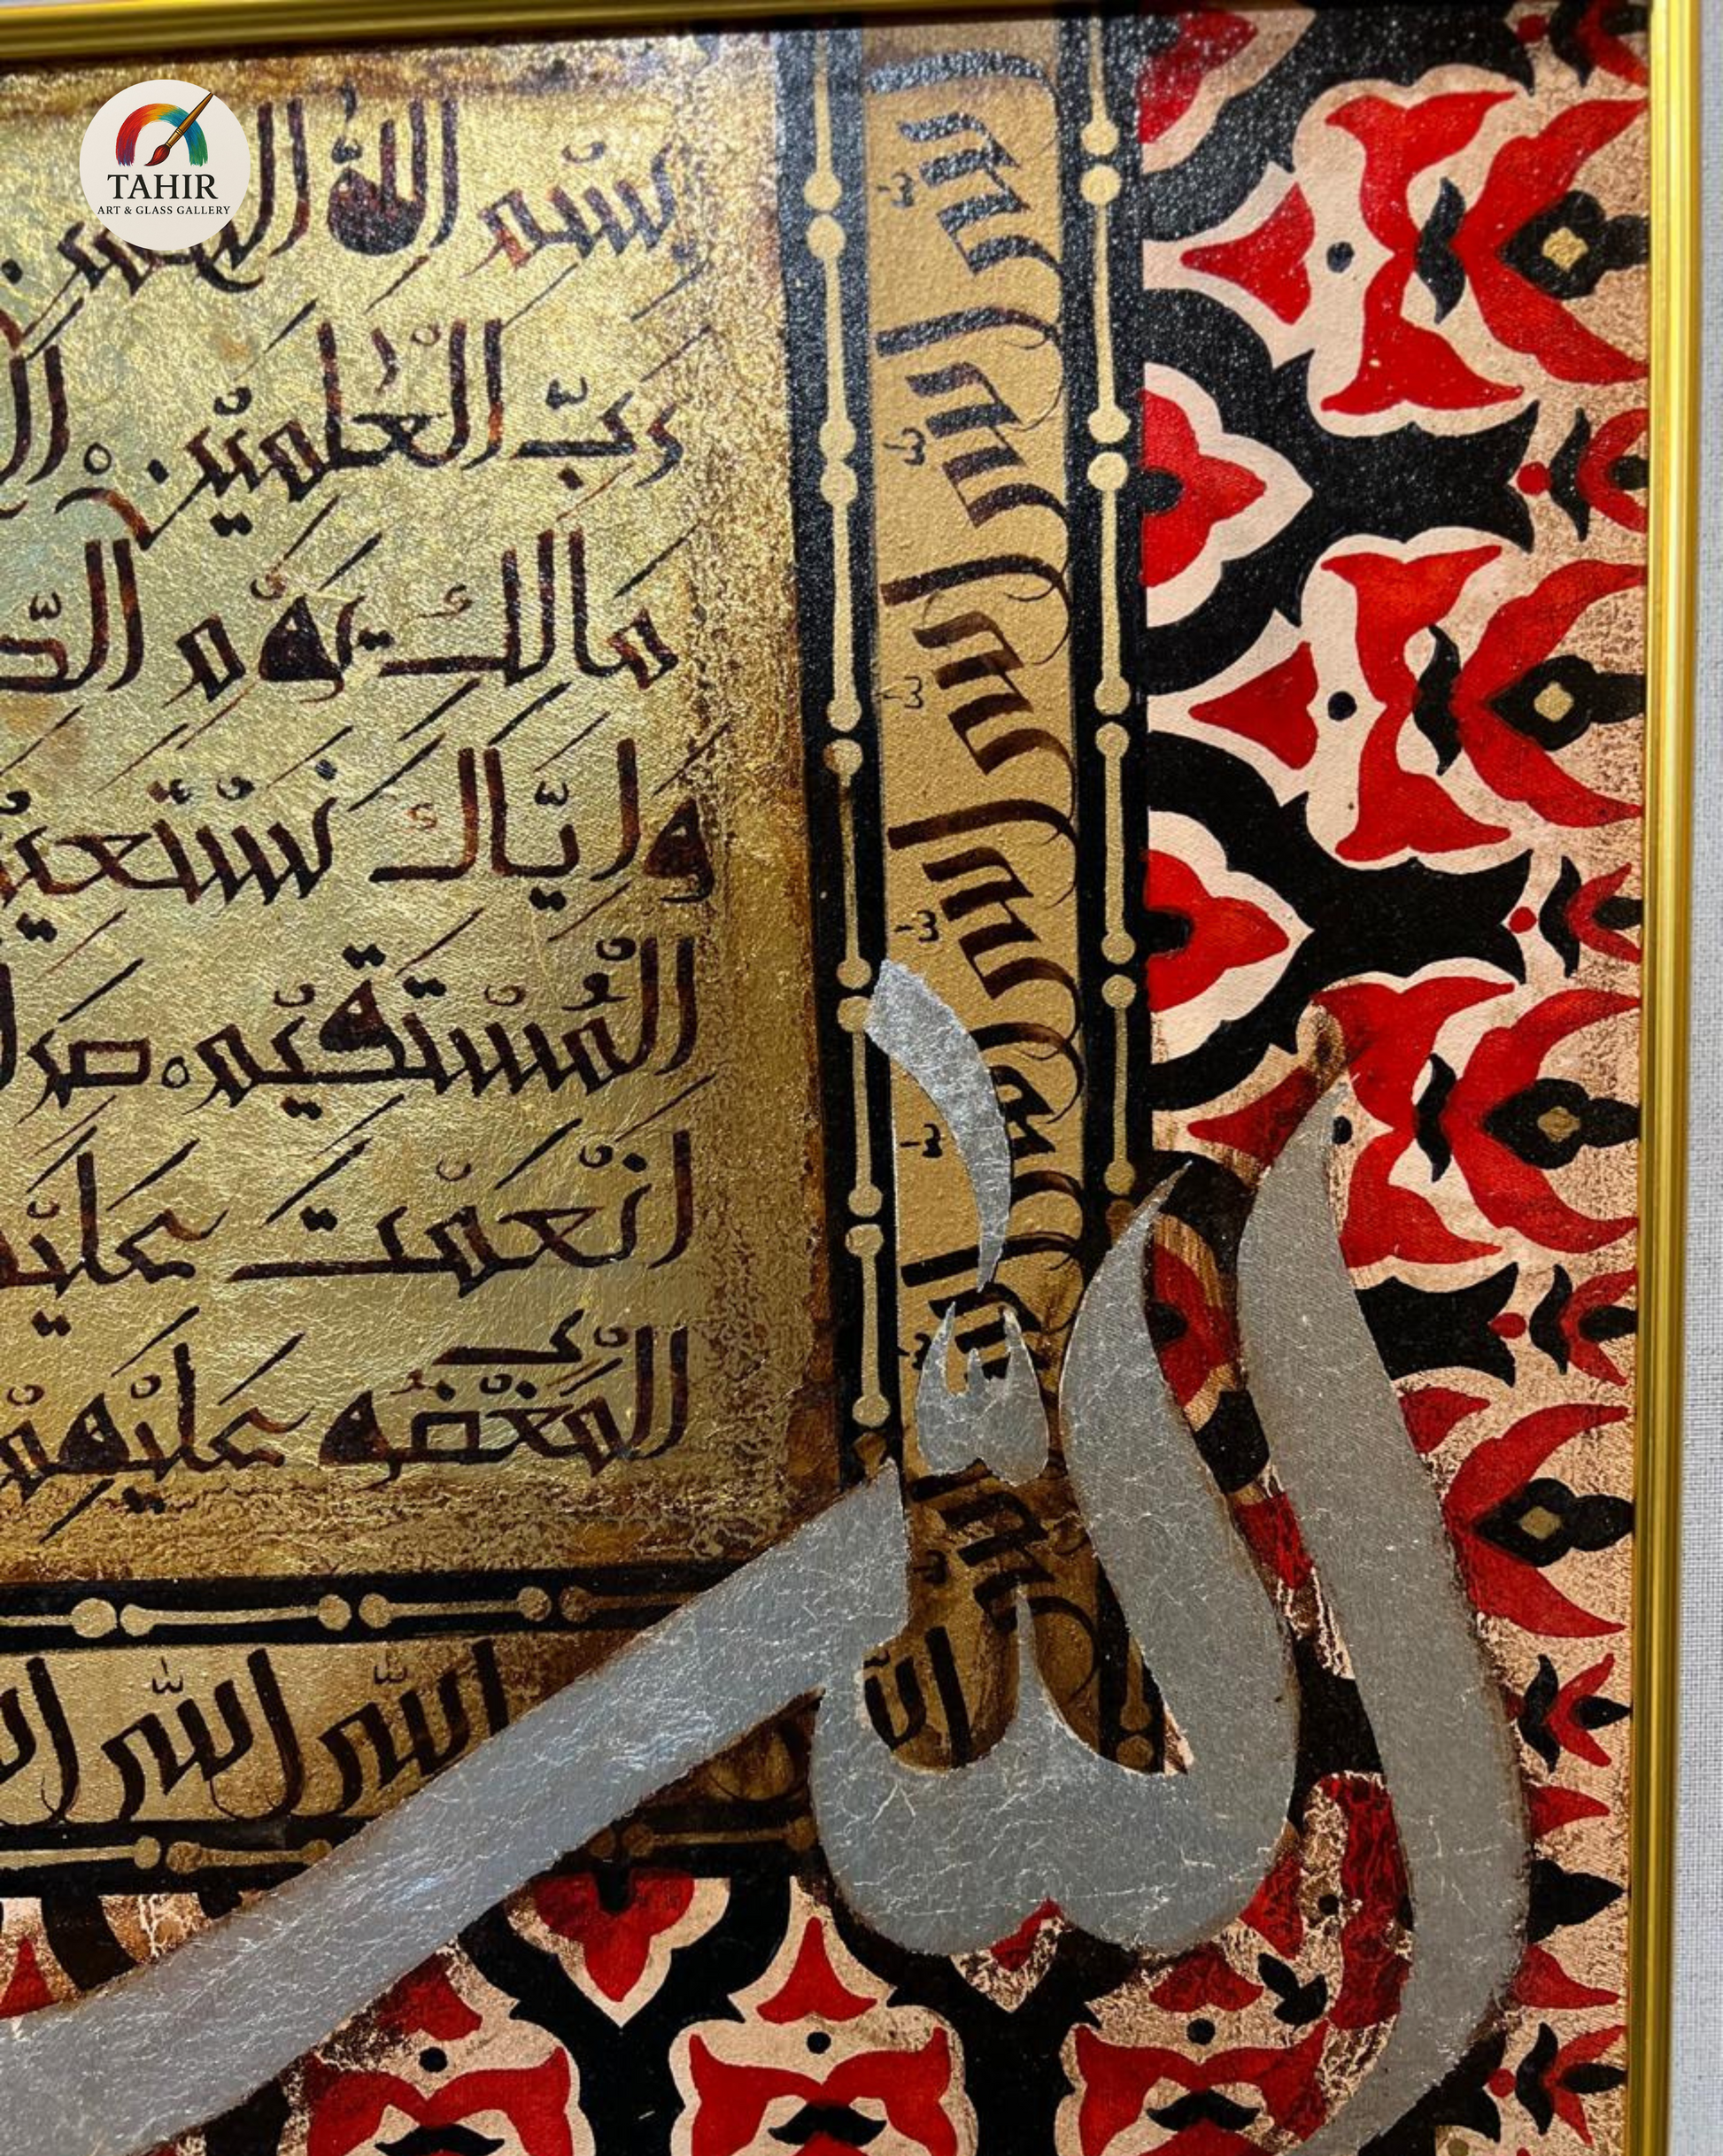 TAHIR
ART & GLASS GALLERY
بِسْمِ اللّٰه
رَبِّ الْعٰلَمِيْنَ
مَالِكِ يَوْمِ
وَاِيَّاكَ نَسْتَعِيْن
الْمُسْتَقِيْمَ صِرَا
اَنْعَمْتَ عَلَيْ
الْمَغْضُوْبِ عَلَيْهِمْ
الله الله الله الله
الله الله
الله